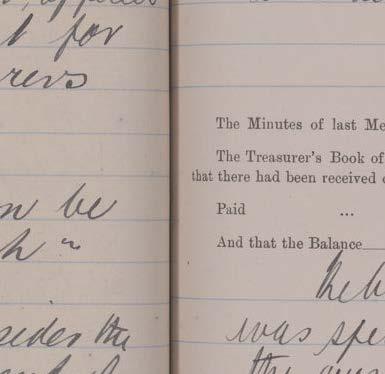 t for
rers
n be
h "
sider the
The Minutes of last Me
The Treasurer's Book of
that there had been received
Paid ...
And that the Balance
was spe
the